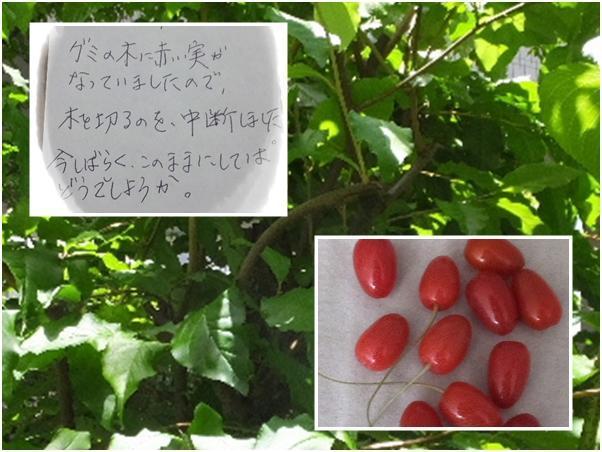 グミの木に赤い実が
なっていましたので、
木を切るのを、中断しました
今しばらく、このままにしては
どうでしょうか。